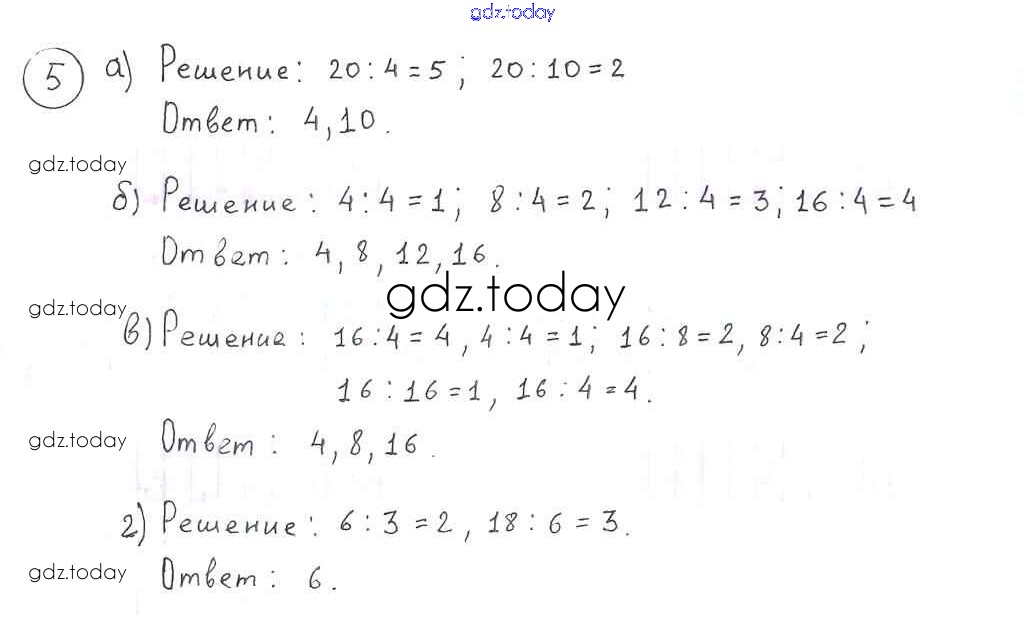 gdz.today
5 а) Решение: 20 : 4 = 5 ; 20 : 10 = 2
Ответ: 4, 10.
gdz.today
б) Решение : 4 : 4 = 1 ; 8 : 4 = 2 ; 12 : 4 = 3 ; 16 : 4 = 4
Ответ : 4, 8, 12, 16.
gdz.today
gdz.today
в) Решение : 16 : 4 = 4 , 4 : 4 = 1 ; 16 : 8 = 2, 8 : 4 = 2 ;
16 : 16 = 1, 16 : 4 = 4.
gdz.today
Ответ : 4, 8, 16.
г) Решение : 6 : 3 = 2, 18 : 6 = 3.
gdz.today
Ответ : 6.